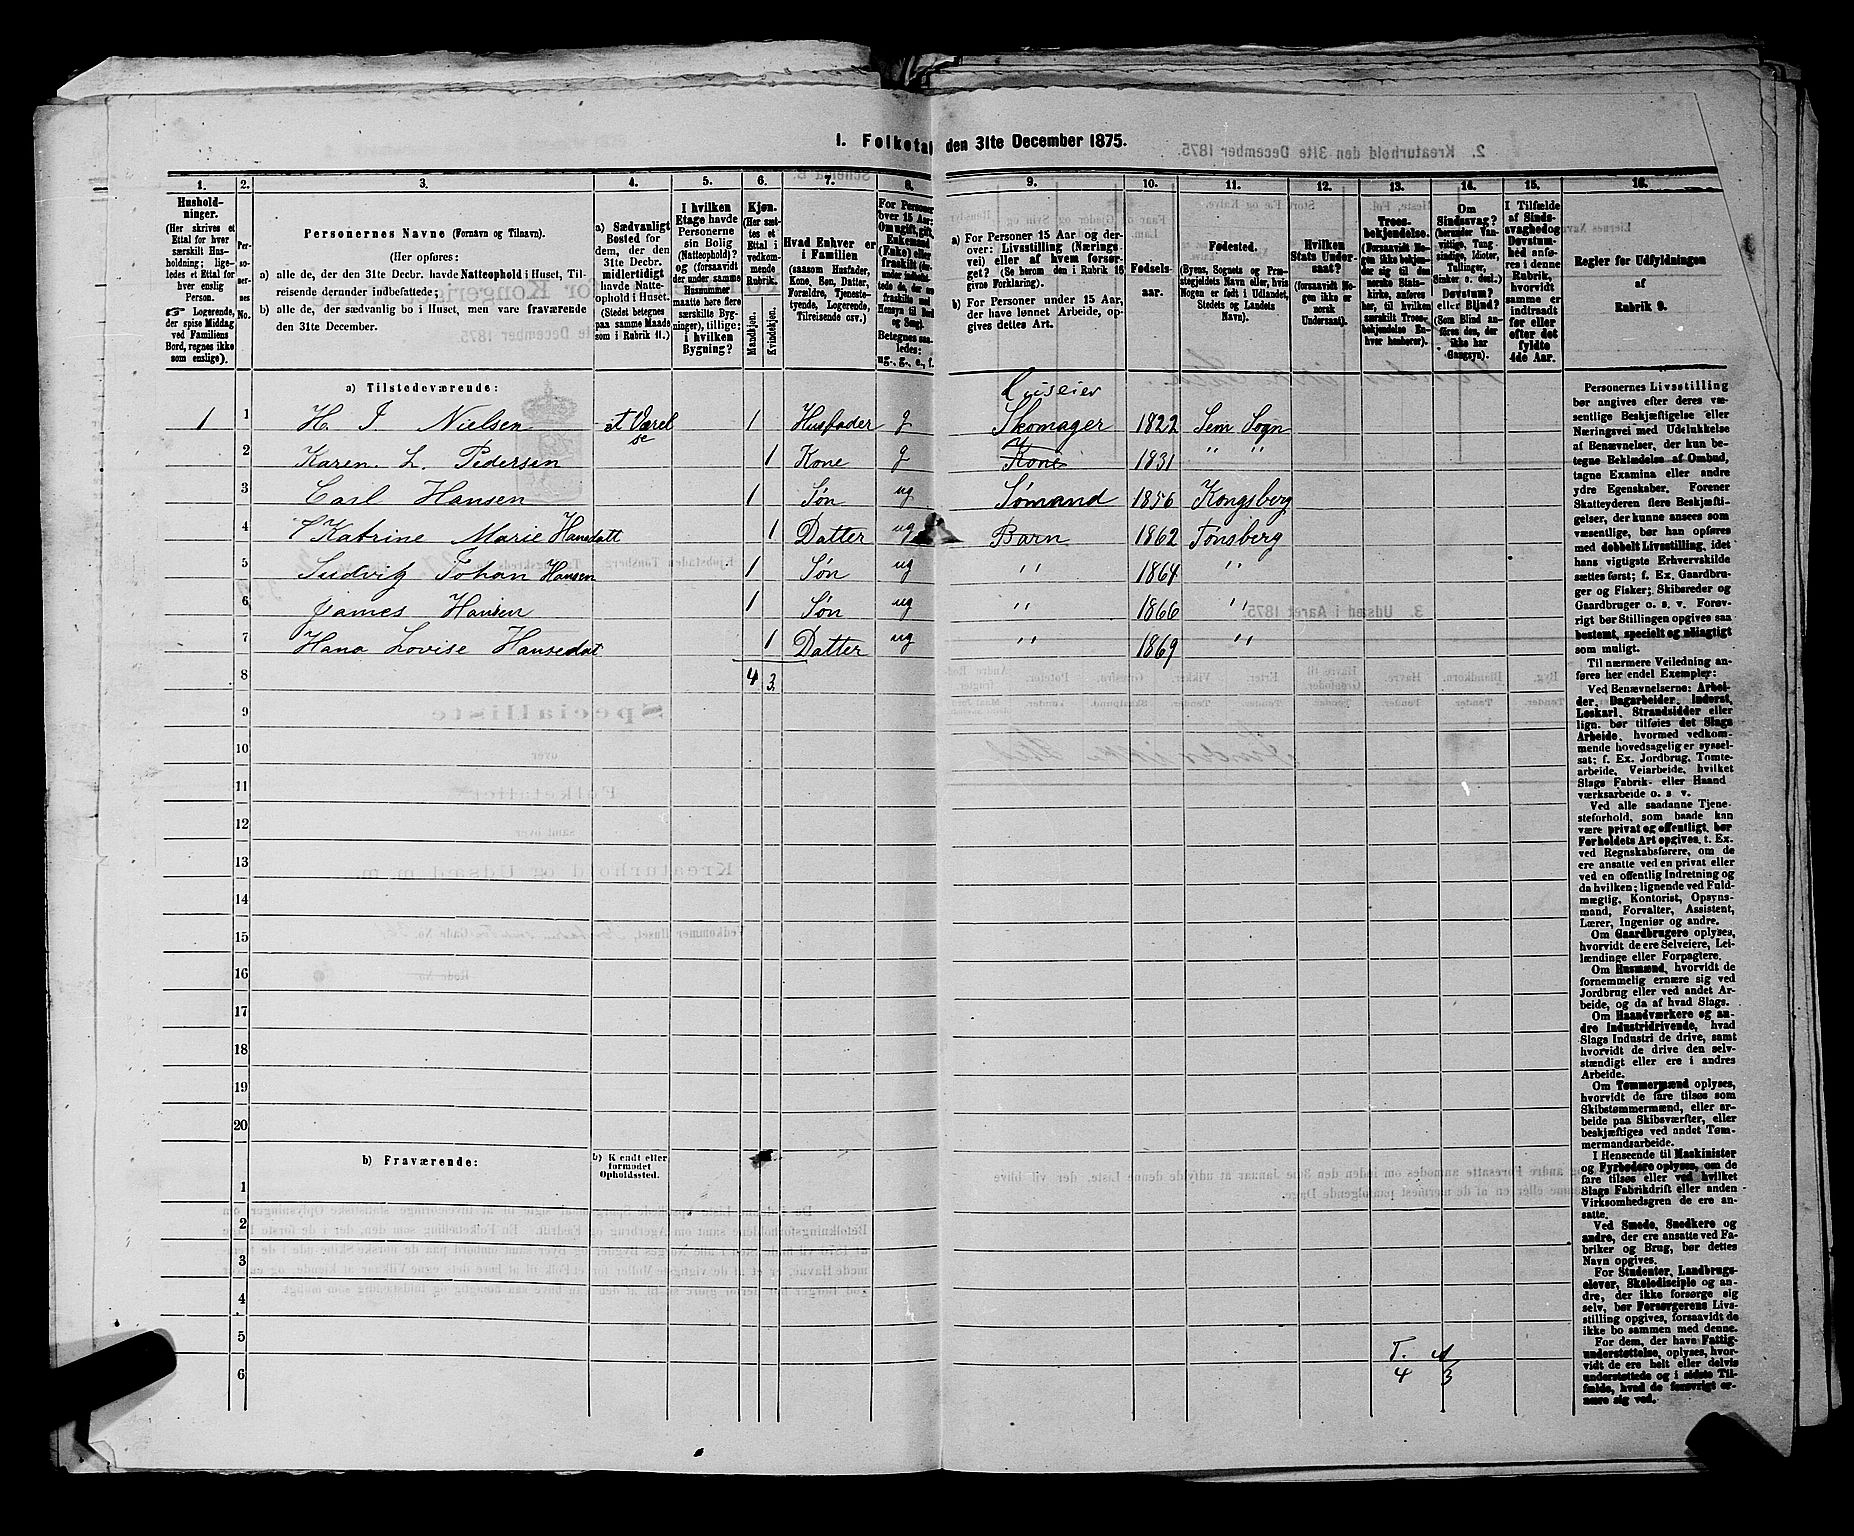 1. Folketal den 31te December 1875.
1. 2. 3. 4. 5. 6. 7. 8. 9. 10. 11. 12. 13. 14. 15. 16.
Husholdninger.
(Her skrives et
Ettal for hver
særskilt Husholdning;
ligeledes
et Ettal for
hver enslig
Person.
Logerende,
der spise Middag
ved Familiens
Bord, regnes ikke
som enslige).
Personernes No.
Personernes Navne (Fornavn og Tilnavn).
(Her opføres:
a) alle de, der den 31te Decbr. havde Natteophold i Huset, Tilreisende
derunder indbefattede;
b) alle de, der sædvanlig bo i Huset, men vare fraværende
den 31te December.
a) Sædvanligt
Bosted for
dem, der den
31te Decbr.
midlertidigt
havde Natteophold
i Huset.
(Stedet betegnes
paa samme Maade
som i Rubrik 11.)
I hvilken
Etage havde
Personerne
sin Bolig
(Natteophold)?
og (forsaavidt
der under samme
Husnummer
maatte høre flere
særskilte Bygninger),
tillige:
i hvilken
Bygning?
Kjøn.
(Her sættes
et
Ettal i
vedkommende
Rubrik.
Mandkjøn.
Kvindekjøn.
Hvad Enhver er
i Familien
(saasom Husfader,
Kone, Søn, Datter,
Forældre, Tjenestetyende,
Logerende,
Tilreisende osv.)
For Personer
over 15 Aar:
Om ugift, gift,
Enkemand
(Enke) eller
fraskilt
Betegnes saaledes:
ug., g., e., f.
a) For Personer 15 Aar og derover:
Livsstilling (Næringsvei)
eller af hvem forsørget?
(Se herom den i Rubrik 16
givne Forklaring).
b) For Personer under 15 Aar,
der have lønnet Arbeide, opgives
dettes Art.
Fødselsaar.
Fødested.
(Byens, Sognets og Præstegjeldets
Navn eller, hvis
Nogen er født i Udlandet,
Stedets og Landets
Navn).
Hvilken
Stats Undersaat?
(forsaavidt Nogen
ikke er
norsk
Undersaat).
Troesbekjendelse.
(Forsaavidt Nogen
ikke bekjender
sig til den
norske Statskirke,
anføres
her, til hvilken
særskilt Troesbekjendelse
Enhver
henhører).
Om
Sindssvag?
(herunder Vanvittige,
Tungsindige,
Idioter,
Tullinger,
Sinker o. desl.)
Døvstum?
eller Blind?
(Som Blind anføres
den, der
ikke har
Gangsyn).
I Tilfælde
af Sindssvaghed
og
Døvstumhed
anføres
i denne
Rubrik,
hvorvidt
samme er
indtraadt
før eller
efter det
fyldte
4de Aar.
Regler for Udfyldningen
af
Rubrik 9.
a) Tilstedeværende:
Huseier
1 1 H. I Nielsen 1 Husfader g Skomager 1822 Sem Sogn
2 Karen. L. Pedersen 1 Kone g Kone 1831 " "
3 Carl Hansen 1 Søn ug Sømand 1856 Kongsberg
4 Katrine Marie Hansdatt 1 Datter ug Barn 1862 Tønsberg
5 Ludvig Johan Hansen 1 Søn ug " 1864 "
6 James Hansen 1 Søn ug " 1866 "
7 Hana Lovise Hansedat 1 Datter ug " 1869 "
8 4 3
9
10
11
12
13
14
15
16
17
18
19
20
b) Fraværende:
b) Kjendt eller
formodet
Opholdssted.
1
2
3
4
5
6
T.
4 3
Personernes Livsstilling
bør angives efter deres væsentlige
Beskjæftigelse eller
Næringsvei med Udelukkelse
af Benævnelser, der kun betegne
Beklædelse af Ombud,
tagne Examina eller andre
ydre Egenskaber. Forener
Skatteyderen flere Beskjæftigelser,
der kunne ansees som
væsentlige, bør han opføres
med dobbelt Livsstilling, idet
hans vigtigste Erhvervskilde
sættes først; f. Ex. Gaardbruger
og Fisker; Skibsreder og
Gaardbruger o. s. v. Forøvrigt
bør Stillingen opgives saa
bestemt, specielt og nøiagtigt
som muligt.
Til nærmere Veiledning anføres
her endel Exempler:
Ved Benævnelserne: Arbeider,
Dagarbeider, Inderst,
Løskarl, Strandsidder eller
lign. bør tilføies det Slags
Arbeide, hvormed vedkommende
hovedsagelig er sysselsat;
f. Ex. Jordbrug, Tomtearbeide,
Veiarbeide, hvilket
Slags Fabrik- eller Haandværksarbeide
o. s. v.
Ved alle saadanne Tjenesteforhold,
som baade kan
være privat og offentligt, bør
Forholdets Art opgives, t. Ex.
ved Regnskabsførere, om de
ere ansatte ved en privat eller
ved en offentlig Indretning og
da hvilken; lignende ved Fuldmægtig,
Kontorist, Opsynsmand,
Forvalter, Assistent,
Lærer, Ingeniør og andre.
Om Gaardbrugere oplyses,
hvorvidt de ere Selveiere, Leilændinge
eller Forpagtere.
Om Husmænd, hvorvidt de
fornemmelig ernære sig ved
Jordbrug eller ved andet Arbeide,
og da af hvad Slags.
Om Haandværkere og andre
Industridrivende, hvad
Slags Industri de drive, samt
hvorvidt de drive den selvstændigt
eller ere i andres
Arbeide.
Om Tømmermænd oplyses,
hvorvidt de fare tilsøs som
Skibstømmermænd, eller arbeide
paa Skibsværfter, eller
beskjæftiges ved andet Tømmermandsarbeide.
I Henseende til Maskinister
og Fyrbødere oplyses, om de
fare tilsøs eller ved hvilket
Slags Fabrikdrift eller anden
Virksomhedsgren de ere ansatte.
Ved Smede, Snedkere og
andre, der ere ansatte ved Fabriker
og Brug, bør dettes
Navn opgives.
For Studenter, Landbrugselever,
Skoledisciple og andre,
der ikke forsørge sig
selv, bør Forsørgerens Livsstilling
opgives, forsaavidt de
ikke bo sammen med denne.
For dem, der have Fattigunderstøttelse,
oplyses, hvorvidt
de ere helt eller delvis
understøttede og i sidste Tilfælde,
hvad de forøvrigt ernære
sig ved.